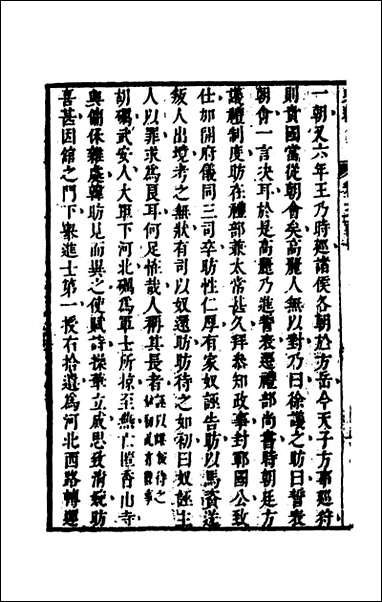 一朝又六年王乃時經諸侯各朝於方岳今天子方事巡狩
則貴國當從朝會矣高麗人無以對乃曰徐議之昉曰誓表
朝會一言決耳於是高麗乃進誓表遷禮部尚書時朝廷方
議禮制度昉在禮部兼太常甚久拜參知政事封鄆國公致
仕加開府儀同三司卒昉性仁厚有家奴誣告昉以馬資送
叛人出境考之無狀有司以奴還昉昉待之如初曰奴誣主
人以罪求為良耳何足怪哉人稱其長者
胡礪武安人大軍下河北礪為軍士所掠至燕亡匿香山寺
與傭保雜處韓昉見而異之使賦詩操筆立成思致清婉昉
喜甚因館之門下舉進士第一授右拾遺為河北西路轉運